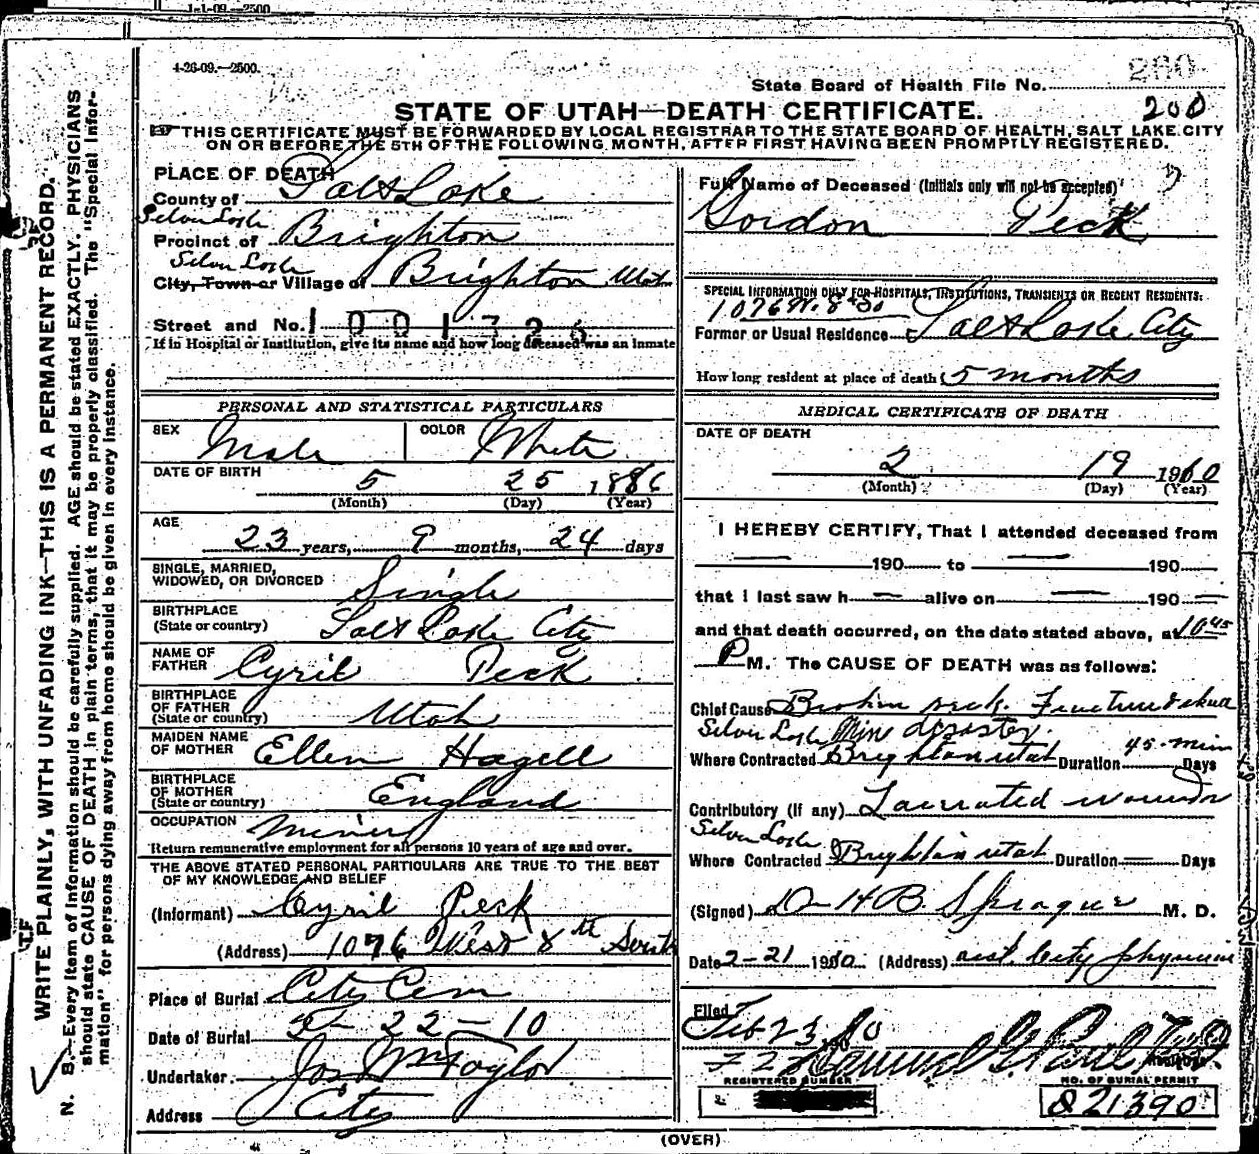 1-1-09.—2500
4-26-09.—2500.
280
State Board of Health File No.
STATE OF UTAH—DEATH CERTIFICATE. 200
THIS CERTIFICATE MUST BE FORWARDED BY LOCAL REGISTRAR TO THE STATE BOARD OF HEALTH, SALT LAKE CITY
ON OR BEFORE THE 5TH OF THE FOLLOWING MONTH, AFTER FIRST HAVING BEEN PROMPTLY REGISTERED.
WRITE PLAINLY, WITH UNFADING INK—THIS IS A PERMANENT RECORD.
N. B.—Every item of information should be carefully supplied. AGE should be stated EXACTLY. PHYSICIANS
should state CAUSE OF DEATH in plain terms, that it may be properly classified. The "Special Infor-
mation" for persons dying away from home should be given in every instance.
PLACE OF DEATH
County of Salt Lake
Silver Lake
Precinct of Brighton
Silver Lake
City, Town or Village of Brighton Utah
Street and No. 1001326
If in Hospital or Institution, give its name and how long deceased was an inmate
PERSONAL AND STATISTICAL PARTICULARS
SEX Male COLOR White
DATE OF BIRTH 5 25 1886
(Month) (Day) (Year)
AGE
23 years, 9 months, 24 days
SINGLE, MARRIED,
WIDOWED, OR DIVORCED Single
BIRTHPLACE
(State or country) Salt Lake City
NAME OF
FATHER Cyril Peck
BIRTHPLACE
OF FATHER
(State or country) Utah
MAIDEN NAME
OF MOTHER Ellen Hagell
BIRTHPLACE
OF MOTHER
(State or country) England
OCCUPATION Miner
Return remunerative employment for all persons 10 years of age and over.
THE ABOVE STATED PERSONAL PARTICULARS ARE TRUE TO THE BEST
OF MY KNOWLEDGE AND BELIEF
(Informant) Cyril Peck
(Address) 1076 West 8th South
Place of Burial City Cem
Date of Burial 2-22-10
Undertaker Jos Wm Taylor
Address City
Full Name of Deceased (Initials only will not be accepted)
Gordon Peck
SPECIAL INFORMATION ONLY FOR HOSPITALS, INSTITUTIONS, TRANSIENTS OR RECENT RESIDENTS:
1076 W. 8th So
Former or Usual Residence Salt Lake City
How long resident at place of death 5 months
MEDICAL CERTIFICATE OF DEATH
DATE OF DEATH
2 19 1910
(Month) (Day) (Year)
I HEREBY CERTIFY, That I attended deceased from
— 190 to — 190
that I last saw h — alive on — 190 —
and that death occurred, on the date stated above, at 10 45
P M. The CAUSE OF DEATH was as follows:
Chief Cause Broken neck. Fracture skull
Silver Lake Mine disaster.
Where Contracted Brighton Utah Duration 45-min Days
Contributory (if any) Lacerated wounds
Silver Lake
Where Contracted Brighton Utah Duration — Days
(Signed) Dr H B. Sprague M. D.
Date 2-21 1910 (Address) asst. City physician
Filed
Feb 23 10
Samuel G Paul
REGISTERED NUMBER
NO. OF BURIAL PERMIT
821390
(OVER)